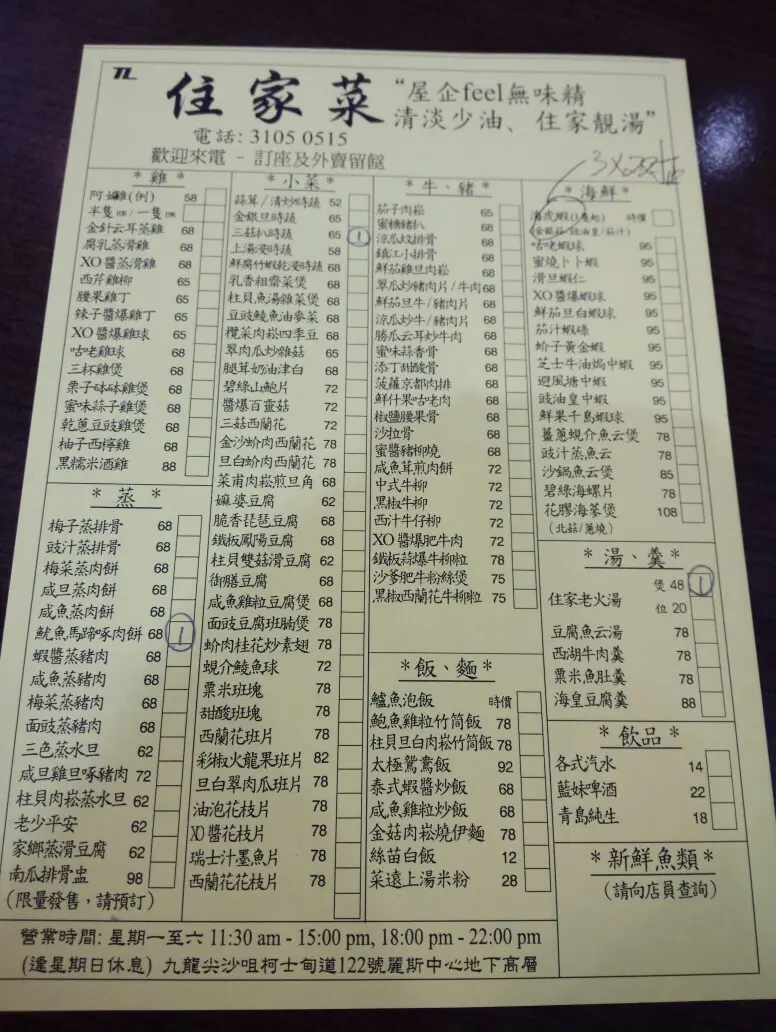 TL
住家菜
“屋企feel無味精
清淡少油、住家靚湯”
電話: 3105 0515
歡迎來電 - 訂座及外賣留餸
* 雞 *
阿嫲雞(例) 58
半隻 / 一隻
金針云耳蒸雞 68
腐乳蒸滑雞 68
XO醬蒸滑雞 68
西芹雞柳 65
腰果雞丁 65
辣子醬爆雞丁 65
XO醬爆雞球 68
咕老雞球 68
三杯雞煲 68
栗子砵砵雞煲 68
蜜味蒜子雞煲 68
乾蔥豆豉雞煲 68
柚子西檸雞 68
黑糯米酒雞 88
* 蒸 *
梅子蒸排骨 68
豉汁蒸排骨 68
梅菜蒸肉餅 68
咸旦蒸肉餅 68
咸魚蒸肉餅 68
魷魚馬蹄啄肉餅 68 1
蝦醬蒸豬肉 68
咸魚蒸豬肉 68
梅菜蒸豬肉 68
面豉蒸豬肉 68
三色蒸水旦 62
咸旦雞旦啄豬肉 72
柱貝肉崧蒸水旦 62
老少平安 62
家鄉蒸滑豆腐 62
南瓜排骨盅 98
(限量發售，請預訂)
* 小菜 *
蒜茸/清炒時蔬 52
金銀旦時蔬 65
三菇扒時蔬 65 1
上湯浸時蔬 58
鮮腐竹蝦乾浸時蔬 68
乳香粗齋菜煲 68
柱貝魚湯雜菜煲 68
豆豉鯪魚油麥菜 68
欖菜肉崧四季豆 68
翠肉瓜炒雜菇 65
腿茸奶油津白 68
碧綠山鮑片 72
醬爆百靈菇 72
三菇西蘭花 72
金沙蚧肉西蘭花 78
旦白蚧肉西蘭花 78
菜甫肉崧煎旦角 68
嫲婆豆腐 62
脆香琵琶豆腐 68
鐵板鳳陽豆腐 68
柱貝雙菇滑豆腐 62
御膳豆腐 68
咸魚雞粒豆腐煲 68
面豉豆腐班腩煲 78
蚧肉桂花炒素翅 78
蜆介鯪魚球 72
粟米班塊 78
甜酸班塊 78
西蘭花班片 78
彩椒火龍果班片 82
旦白翠肉瓜班片 78
油泡花枝片 78
XO醬花枝片 78
瑞士汁墨魚片 78
西蘭花花枝片 78
* 牛、豬 *
茄子肉崧 65
蜜糖豬扒 68
涼瓜炆排骨 68
鎮江小排骨 68
鮮茄雞旦肉崧 68
翠瓜炒豬肉片/牛肉 68
鮮茄旦牛/豬肉片 68
涼瓜炒牛/豬肉片 68
勝瓜云耳炒牛肉 68
蜜味蒜香骨 68
添丁甜酸骨 68
菠蘿京都肉排 68
鮮什果咕老肉 68
椒鹽腰果骨 68
沙拉骨 68
蜜醬豬柳燒 68
咸魚茸煎肉餅 72
中式牛柳 72
黑椒牛柳 72
西汁牛仔柳 72
XO醬爆肥牛肉 72
鐵板蒜爆牛柳粒 78
沙爹肥牛粉絲煲 75
黑椒西蘭花牛柳粒 75
*飯、麵*
鱸魚泡飯 時價
鮑魚雞粒竹筒飯 78
柱貝旦白肉崧竹筒飯 78
太極鴛鴦飯 92
泰式蝦醬炒飯 68
咸魚雞粒炒飯 68
金菇肉崧燒伊麵 78
絲苗白飯 12
菜遠上湯米粉 28
* 海鮮 *
海虎蝦(3隻起) 時價
(金銀蒜/豉油皇/茄汁)
咕老蝦球 95
蜜燒卜卜蝦 95
滑旦蝦仁 95
XO醬爆蝦球 95
鮮茄旦白蝦球 95
茄汁蝦碌 95
蚧子黃金蝦 95
芝士牛油焗中蝦 95
避風塘中蝦 95
豉油皇中蝦 95
鮮果千島蝦球 95
薑蔥蜆介魚云煲 78
豉汁蒸魚云 78
沙鍋魚云煲 85
碧綠海螺片 78
花膠海蔘煲 108
(北菇/蔥燒)
* 湯、羹 *
住家老火湯 煲 48 1
位 20
豆腐魚云湯 78
西湖牛肉羹 78
粟米魚肚羹 78
海皇豆腐羹 88
* 飲品 *
各式汽水 14
藍妹啤酒 22
青島純生 18
* 新鮮魚類 *
(請向店員查詢)
營業時間: 星期一至六 11:30 am - 15:00 pm, 18:00 pm - 22:00 pm
(逢星期日休息) 九龍尖沙咀柯士甸道122號麗斯中心地下高層